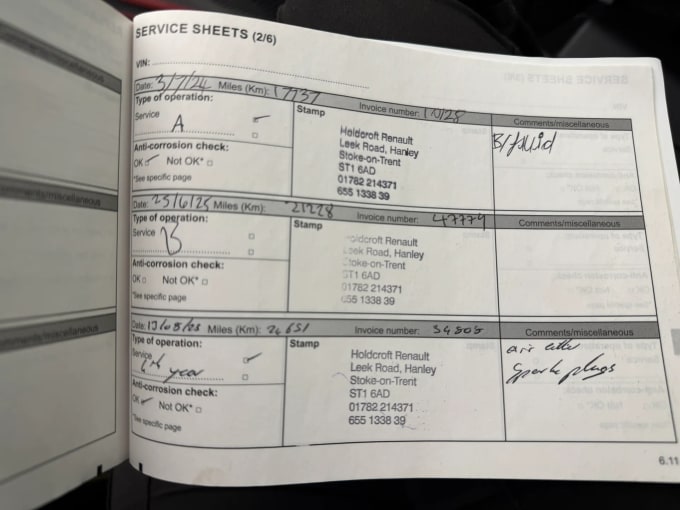 SERVICE SHEETS (2/6)
VIN:
Date: 3/7/24 Miles (Km): 17737 Invoice number: Comments/miscellaneous
Type of operation: Stamp
Service
A
Anti-corrosion check:
OK Not OK*
*See specific page
Holdcroft Renault
Leek Road, Hanley
Stoke-on-Trent
ST1 6AD
01782 214371
655 1338 39
B/fluid
Date: 25/6/25 Miles (Km): 21228 Invoice number: 47774 Comments/miscellaneous
Type of operation: Stamp
Service
B
Anti-corrosion check:
OK Not OK*
*See specific page
Holdcroft Renault
Leek Road, Hanley
Stoke-on-Trent
ST1 6AD
01782 214371
655 1338 39
Date: Miles (Km): 24651 Invoice number: Comments/miscellaneous
Type of operation: Stamp
Service
year
Anti-corrosion check:
OK Not OK*
*See specific page
Holdcroft Renault
Leek Road, Hanley
Stoke-on-Trent
ST1 6AD
01782 214371
655 1338 39
air
Spark plugs
6.11